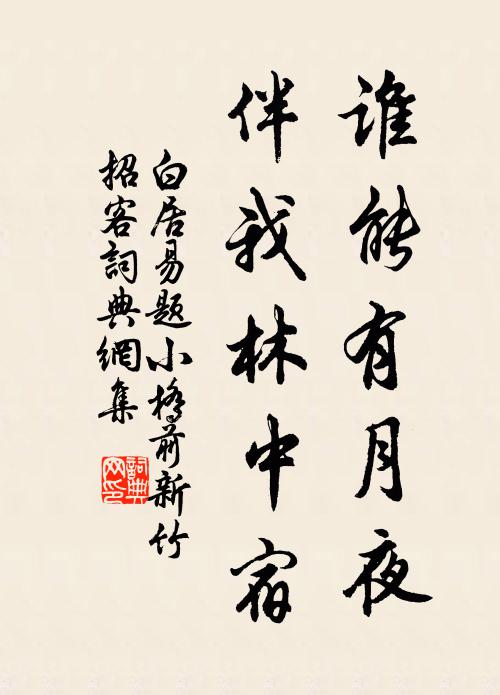 谁能有月夜
伴我林中宿
白居易题小桥前新竹
招客詞典網集
詞典
网印